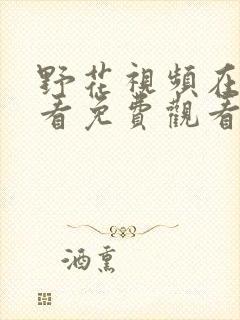 野花視頻在
看免費觀看
酒熏